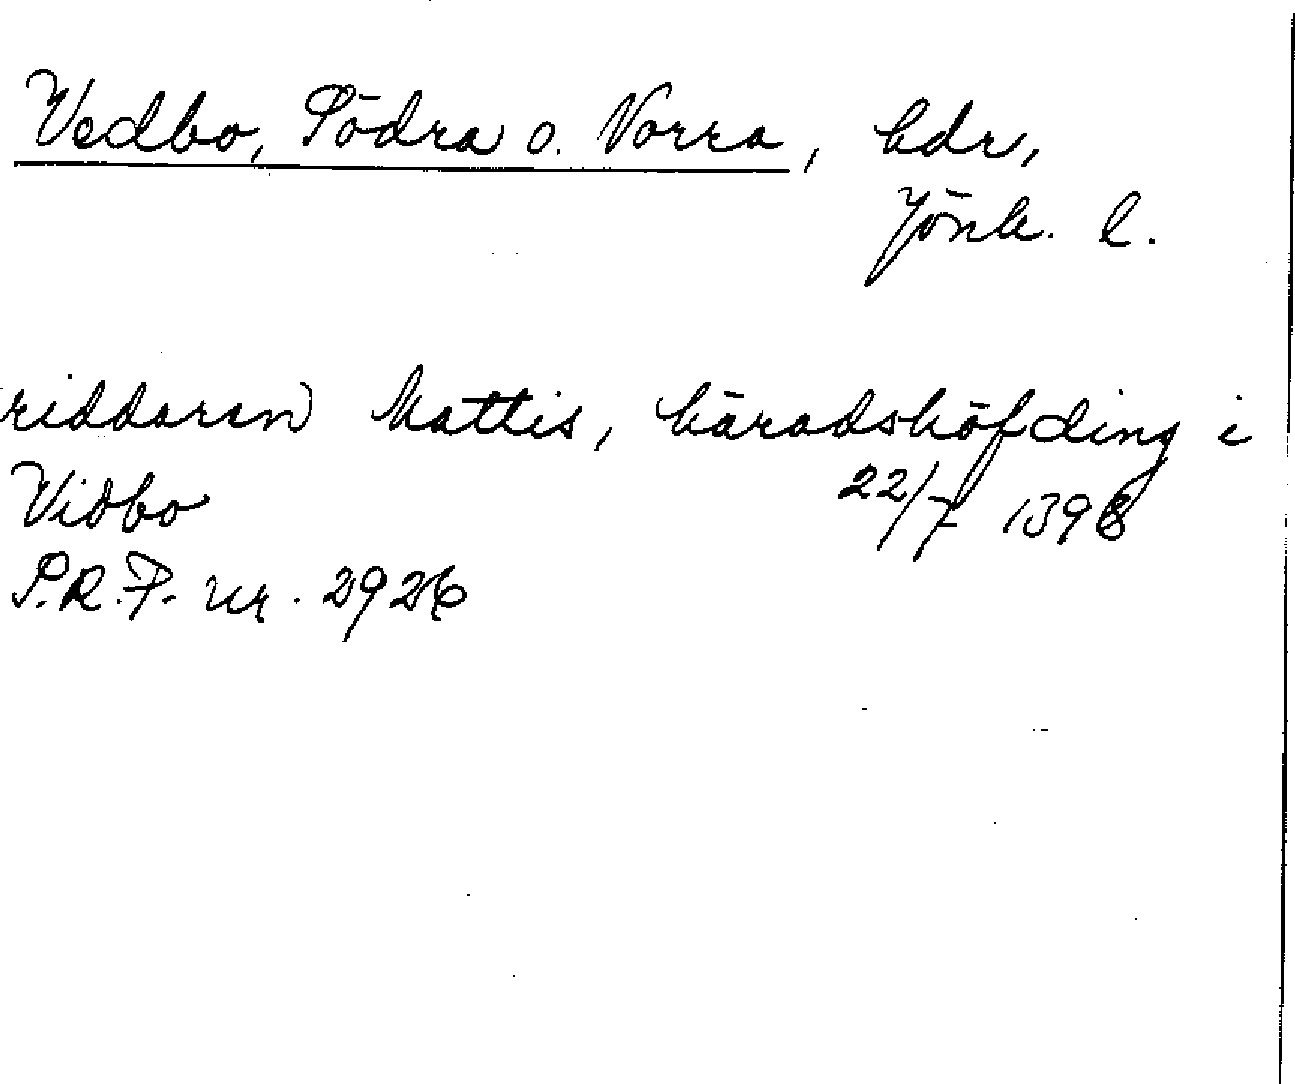 Vedbo, Södra o. Norra, hdr,
Jönk. l.
riddaren Mattis, häradshöfding i
Vidbo 22/7 1398
S.R.P. nr. 2926